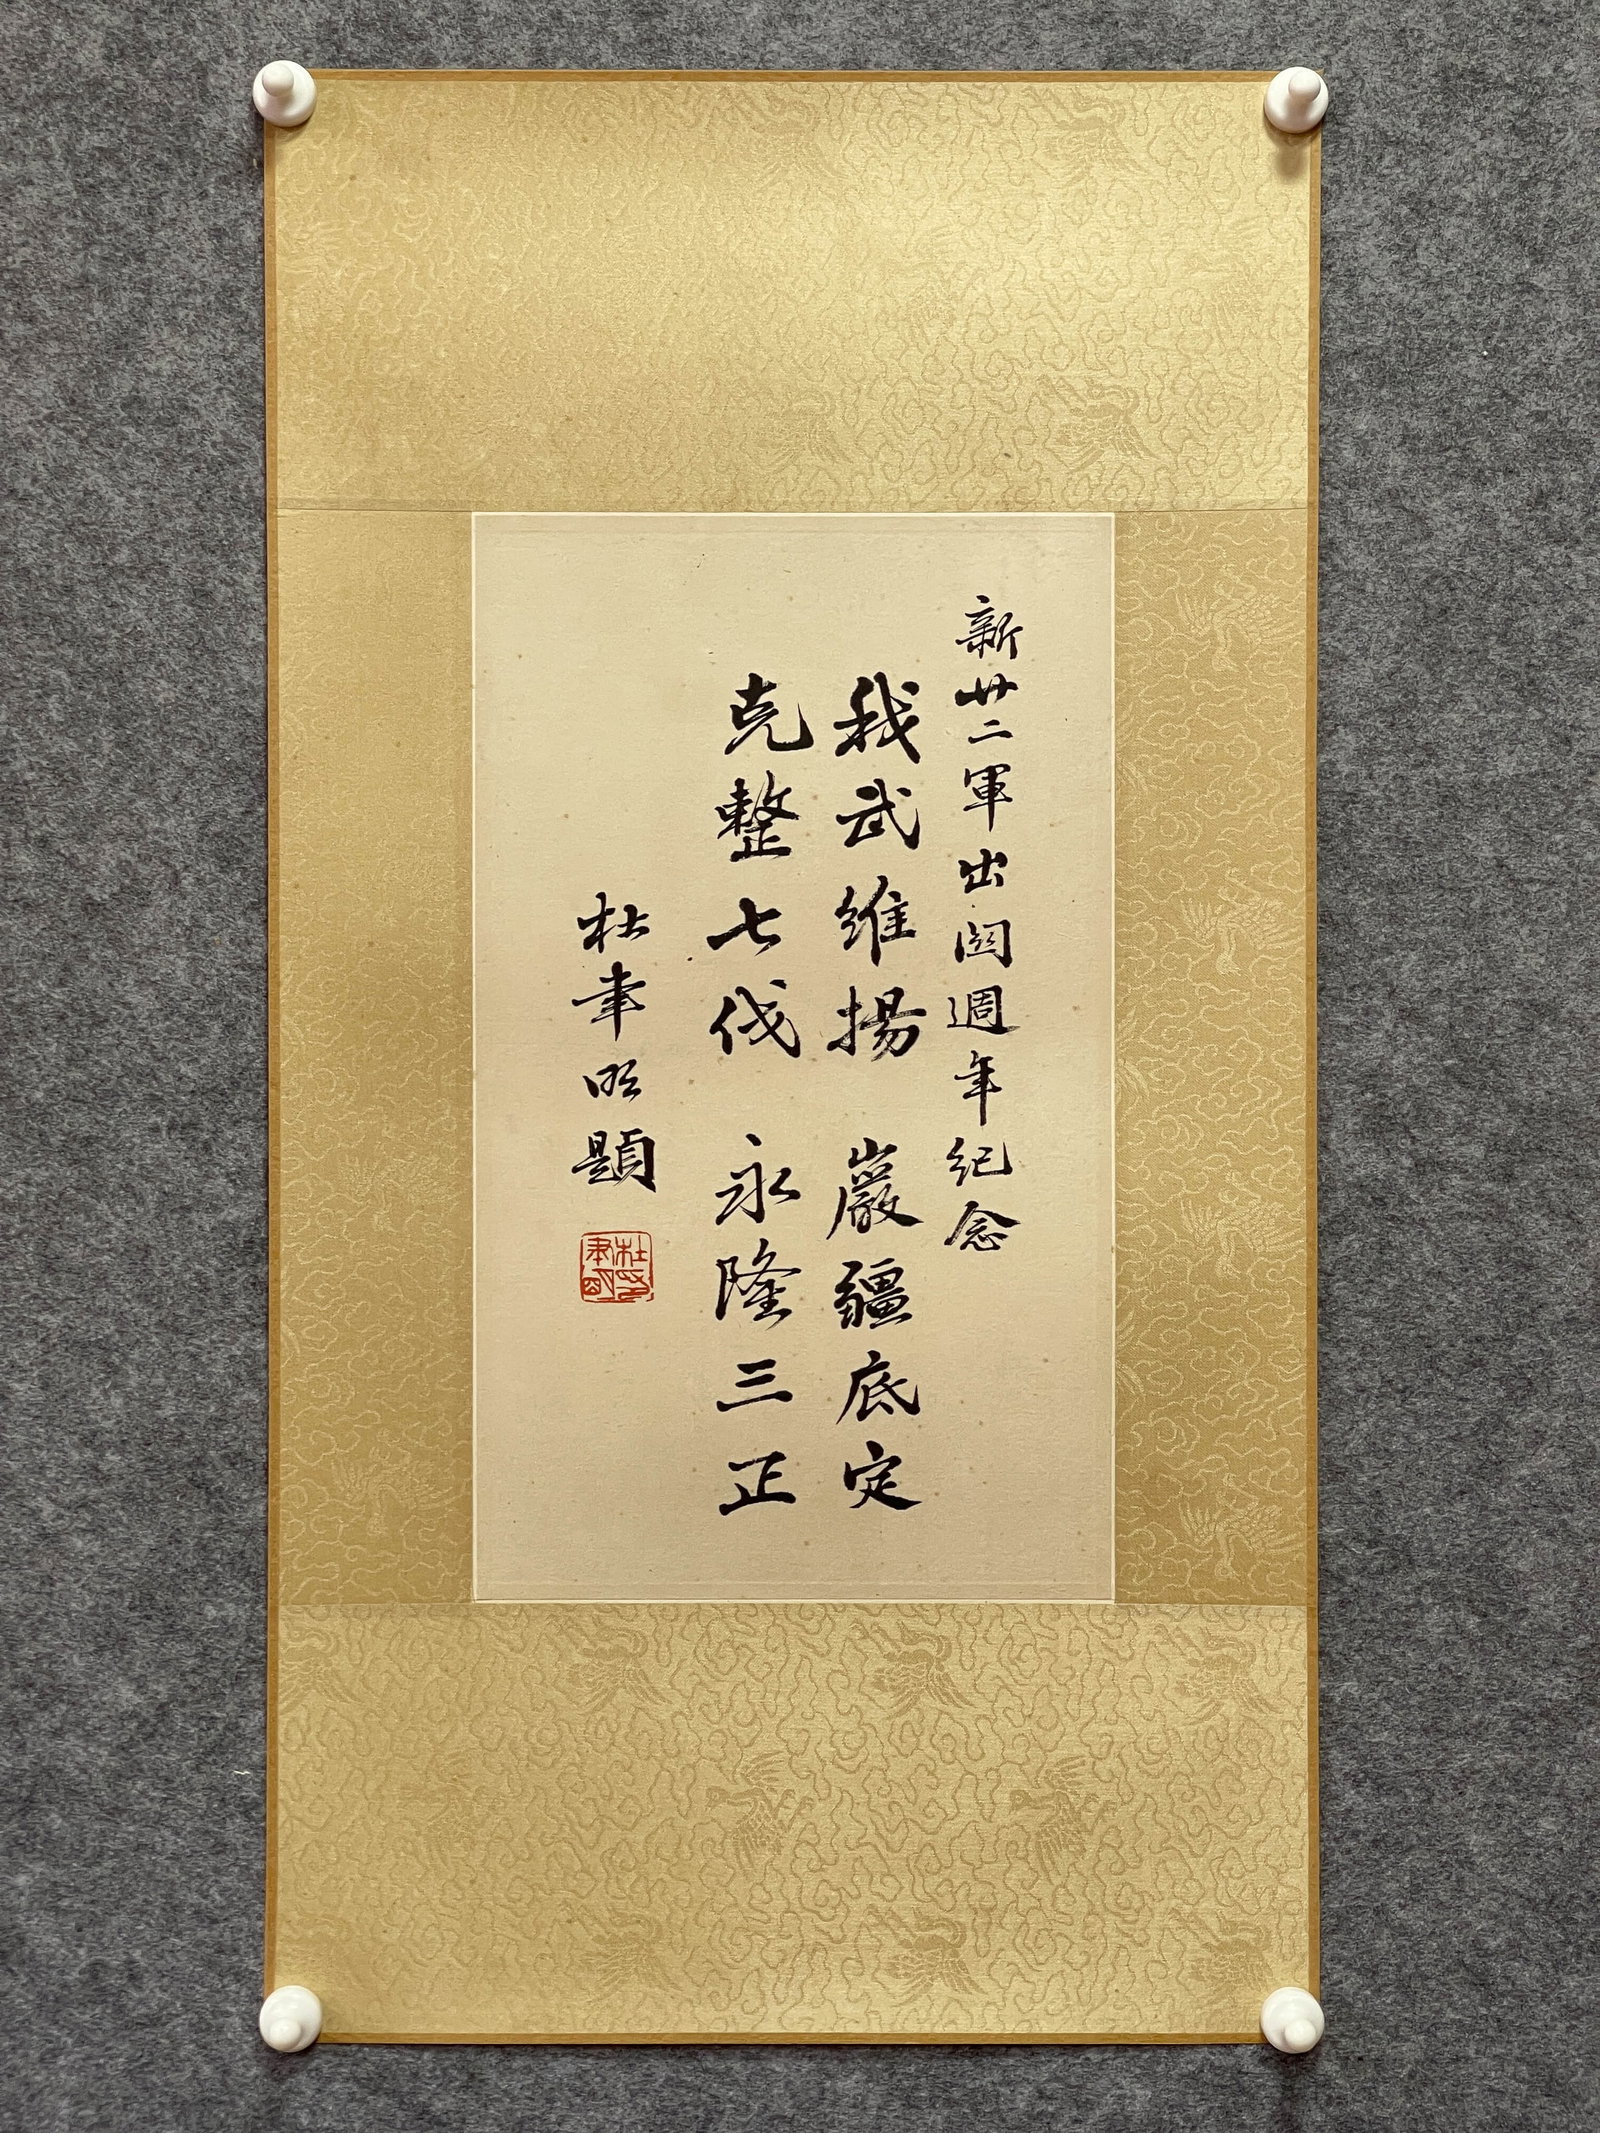 新廿二軍出関週年纪念
我武維揚 巖疆底定
克整七伐 永隆三正
杜聿明題
杜聿明印